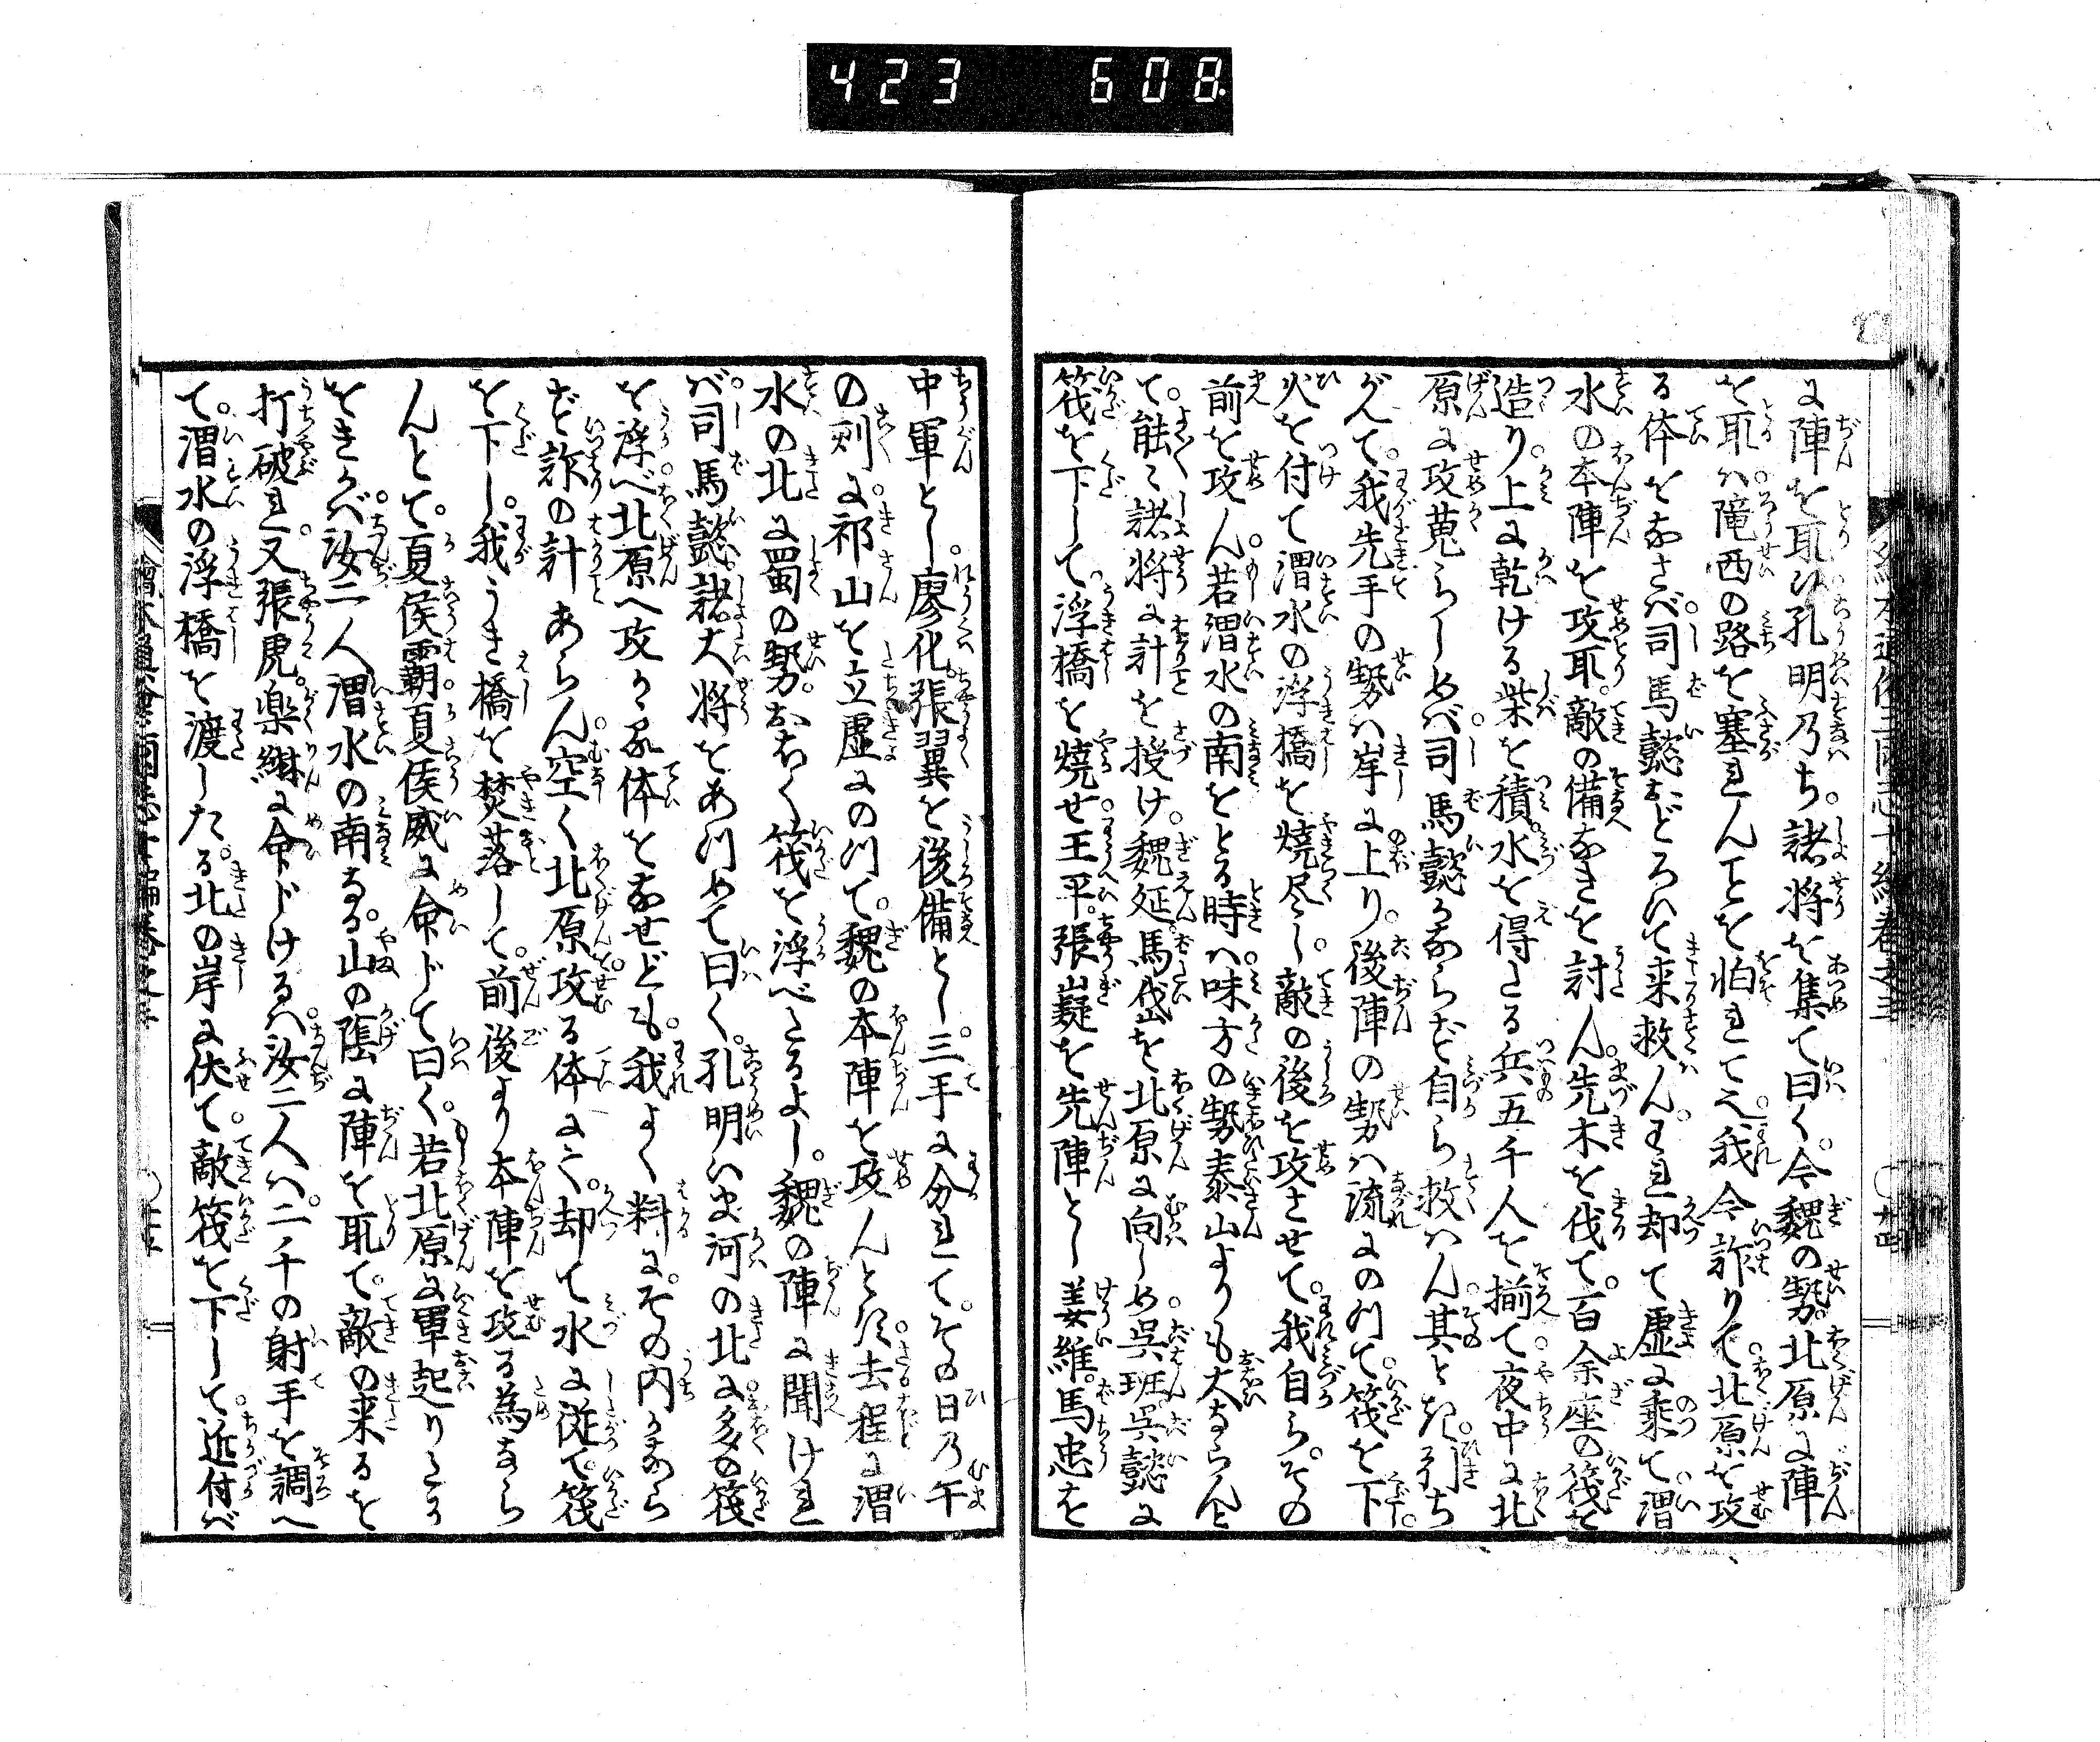 423 608
に陣を取り孔明乃ち。諸将を集て曰く。今魏の勢。北原に陣
を取ハ隴西の路を塞れんことを怕れて也。我今詐りて。北原を攻
る体をなさバ。司馬懿おどろひて来救ん。われ却て虚に乗て。渭
水の本陣を攻取。敵の備なきを討ん。先木を伐て。百余座の筏を
造り。上に乾ける柴を積。水を得たる兵五千人を揃て。夜中に北
原に攻蒐らしめバ。司馬懿かならず自ら救ハん。其とき。引ち
がへて。我先手の勢ハ岸に上り。後陣の勢ハ流にのつて。筏を下。
火を付て渭水の浮橋を焼尽し。敵の後を攻させて。我自ら。その
前を攻ん。若渭水の南をとる時ハ。味方の勢泰山よりも大ならんと
て。能々諸将に計を授け。魏延。馬岱を北原に向しめ。呉班。呉懿に
筏を下して。浮橋を焼せ。王平。張嶷を先陣とし姜維。馬忠を
中軍とし。廖化。張翼を後備とし。三手に分れて。その日乃午
の刻に。祁山を立虚にのつて。魏の本陣を攻んとす。去程に渭
水の北に蜀の勢。おほく筏を浮べたるよし。魏の陣に聞けれ
バ。司馬懿。諸大将をあつめて曰く。孔明いま河の北に。多の筏
を浮べ。北原へ攻かゝる体をなせども。我よく料に。その内かなら
ず詐の計あらん。空く北原を攻る体にて。却て水に従て。筏
を下し。我うき橋を焚落して。前後より本陣を攻る為なら
んとて。夏侯覇。夏侯威に命じて曰く。若北原に軍起りたり
ときかバ。汝二人渭水の南なる。山の蔭に陣を取て。敵の来るを
打破れ。又張虎。楽綝に命じけるハ。汝二人ハ。二千の射手を調へ
て。渭水の浮橋を渡したる。北の岸に伏て。敵筏を下して。近付バ